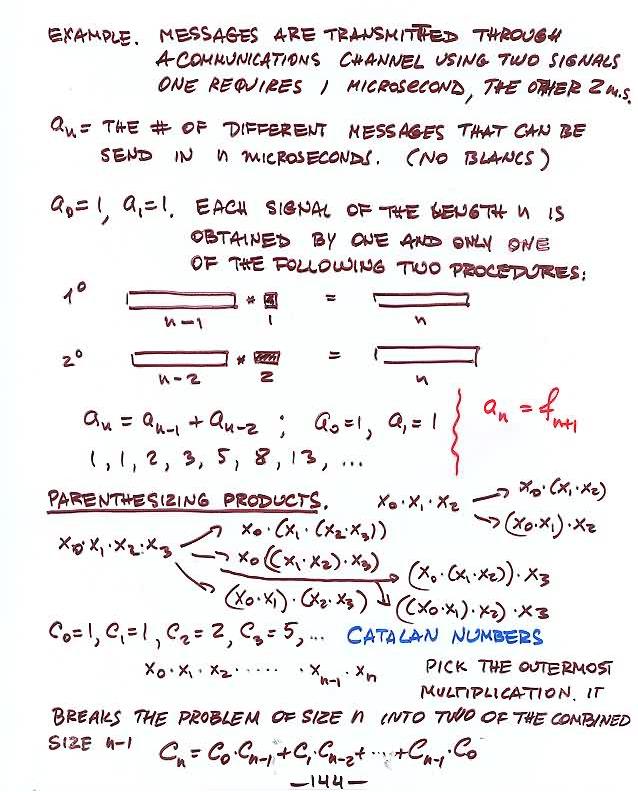 EXAMPLE. MESSAGES ARE TRANSMITTED THROUGH
A COMMUNICATIONS CHANNEL USING TWO SIGNALS
ONE REQUIRES 1 MICROSECOND, THE OTHER 2 m.s.
aₙ = THE # OF DIFFERENT MESSAGES THAT CAN BE
SEND IN n MICROSECONDS. (NO BLANCS)
a₀=1, a₁=1. EACH SIGNAL OF THE LENGTH n IS
OBTAINED BY ONE AND ONLY ONE
OF THE FOLLOWING TWO PROCEDURES:
1⁰ * =
n-1 1 n
2⁰ * =
n-2 2 n
aₙ = aₙ₋₁ + aₙ₋₂ ; a₀=1, a₁=1 aₙ = fₙ₊₁
1, 1, 2, 3, 5, 8, 13, ...
PARENTHESIZING PRODUCTS. x₀·x₁·x₂ → x₀·(x₁·x₂)
→ (x₀·x₁)·x₂
x₀·x₁·x₂·x₃ → x₀·(x₁·(x₂·x₃))
→ x₀((x₁·x₂)·x₃)
→ (x₀·(x₁·x₂))·x₃
→ (x₀·x₁)·(x₂·x₃) ((x₀·x₁)·x₂)·x₃
C₀=1, C₁=1, C₂=2, C₃=5, ... CATALAN NUMBERS
x₀·x₁·x₂ ······ ·xₙ₋₁·xₙ PICK THE OUTERMOST
MULTIPLICATION. IT
BREAKS THE PROBLEM OF SIZE n INTO TWO OF THE COMBINED
SIZE n-1 Cₙ = C₀·Cₙ₋₁+C₁·Cₙ₋₂+···+Cₙ₋₁·C₀
—144—